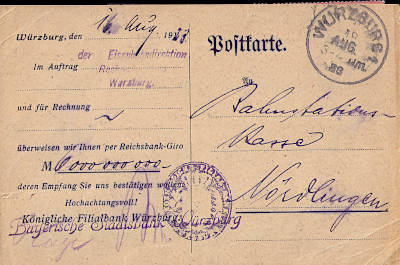 Würzburg, den 16 Aug 1923
der Eisenbahndirektion
im Auftrag
Würzburg.
und für Rechnung
überweisen wir Ihnen per Reichsbank-Giro
M
000 000 000.—
deren Empfang Sie uns bestätigen wollen
Hochachtungsvoll!
Königliche Filialbank Würzburg
Bayerische Staatsbank Würzburg
Postkarte.
WÜRZBURG 1
16
AUG.
An
Bahnstations-
Kasse
Nördlingen